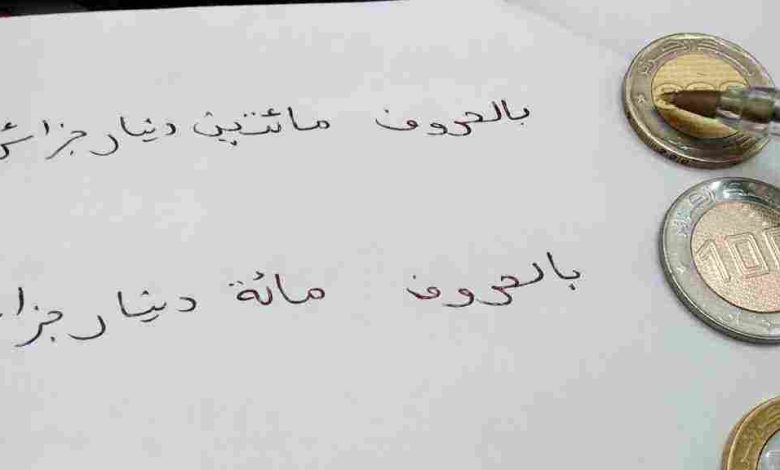 بالحروف مائتين دينار جزائر
بالحروف مائة دينار جزا
100